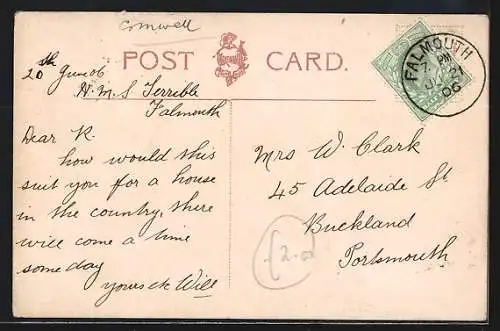 Cornwell
POST CARD.
20th June 06
H.M.S Terrible
Falmouth
Dear K.
how would this
suit you for a house
in the country, there
will come a time
some day
yours etc Will
FALMOUTH
PM
06
Mrs W. Clark
45 Adelaide St
Buckland
Portsmouth